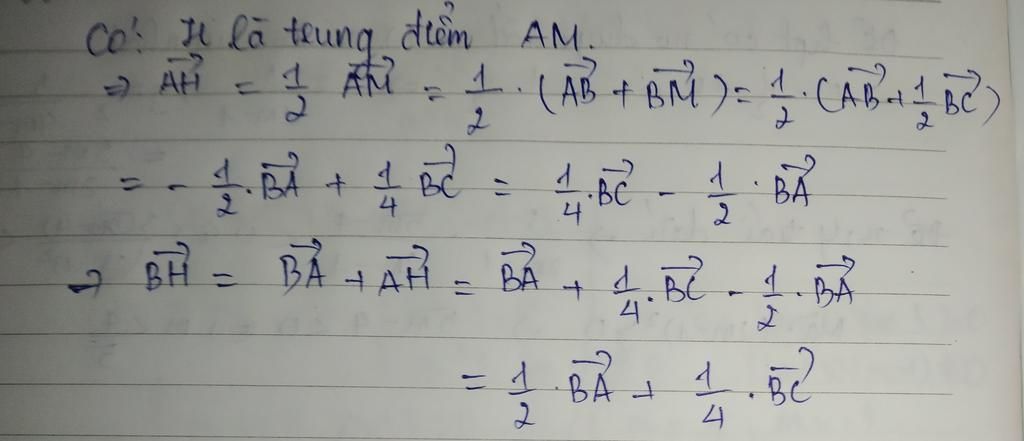 Có: H là trung điểm AM.
⇒ $\overrightarrow{AH} = \frac{1}{2} \overrightarrow{AM} = \frac{1}{2} \cdot (\overrightarrow{AB} + \overrightarrow{BM}) = \frac{1}{2} \cdot (\overrightarrow{AB} + \frac{1}{2} \overrightarrow{BC})$
$= - \frac{1}{2} \cdot \overrightarrow{BA} + \frac{1}{4} \overrightarrow{BC} = \frac{1}{4} \cdot \overrightarrow{BC} - \frac{1}{2} \cdot \overrightarrow{BA}$
⇒ $\overrightarrow{BH} = \overrightarrow{BA} + \overrightarrow{AH} = \overrightarrow{BA} + \frac{1}{4} \cdot \overrightarrow{BC} - \frac{1}{2} \cdot \overrightarrow{BA}$
$= \frac{1}{2} \cdot \overrightarrow{BA} + \frac{1}{4} \cdot \overrightarrow{BC}$